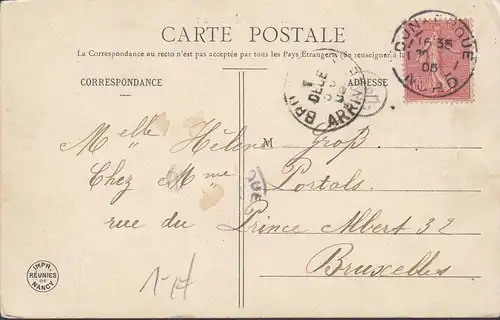 CARTE POSTALE
La Correspondance au recto n'est pas acceptée par tous les Pays Étrangers (Se renseigner à la
CORRESPONDANCE
ADRESSE
DUNKERQUE
16 35
05
NORD
ARRIVÉE
Melle Hélène Grop
Chez Mme Portals
rue du Prince Albert 32
Bruxelles
M
QUE
IMP.
RÉUNIES
DE
NANCY